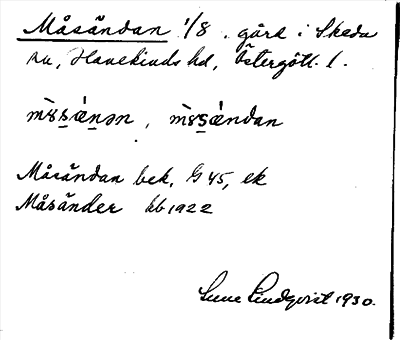 Måsändan 1/8. gård i Skeda
sn, Hanekinds hd, Östergötl. l.
Måsändan bek. G 45, ek
Måsänder kb 1922
Sune Lindqvist 1930.